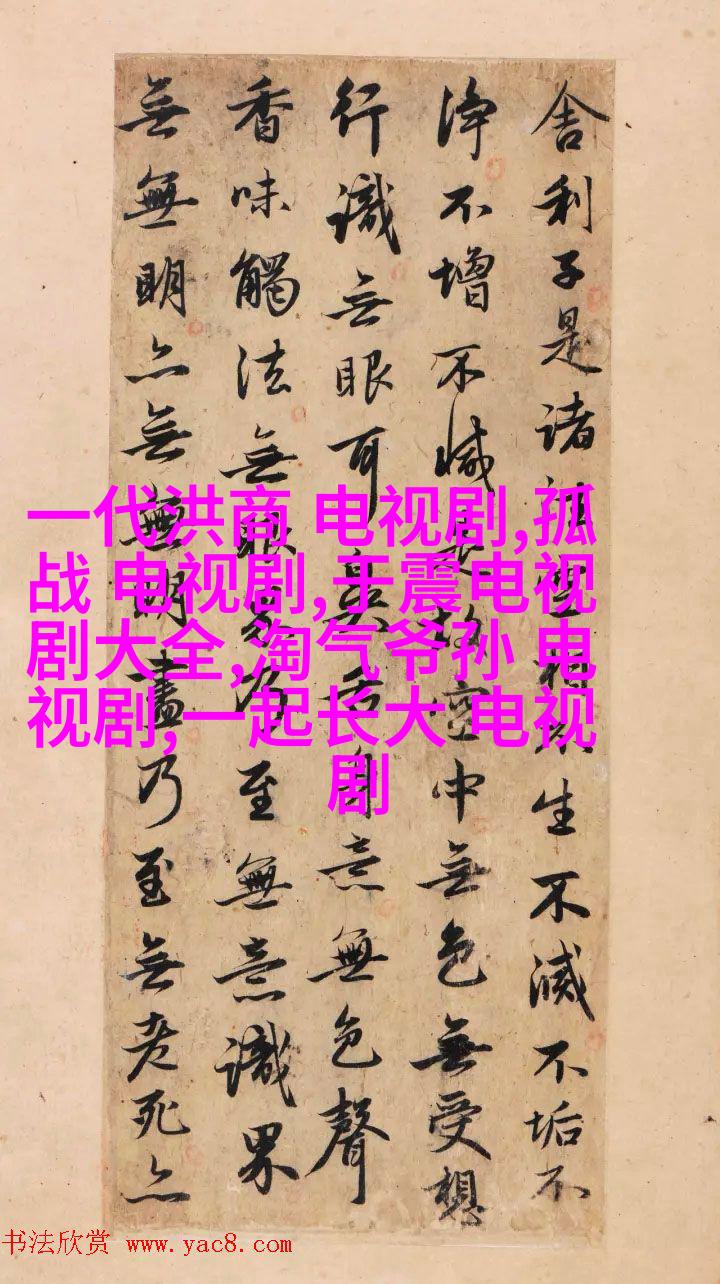 舍利子是諸法空相不生不滅不垢不
淨不增不減是故空中無色無受想
行識無眼耳鼻舌身意無色聲
香味觸法無眼界乃至無意識界
無無明亦無無明盡乃至無老死亦
一代洪商 电视剧,孤
战 电视剧,于震电视
剧大全,淘气爷孙 电
视剧,一起长大 电视
剧
书法欣赏 www.yac8.com